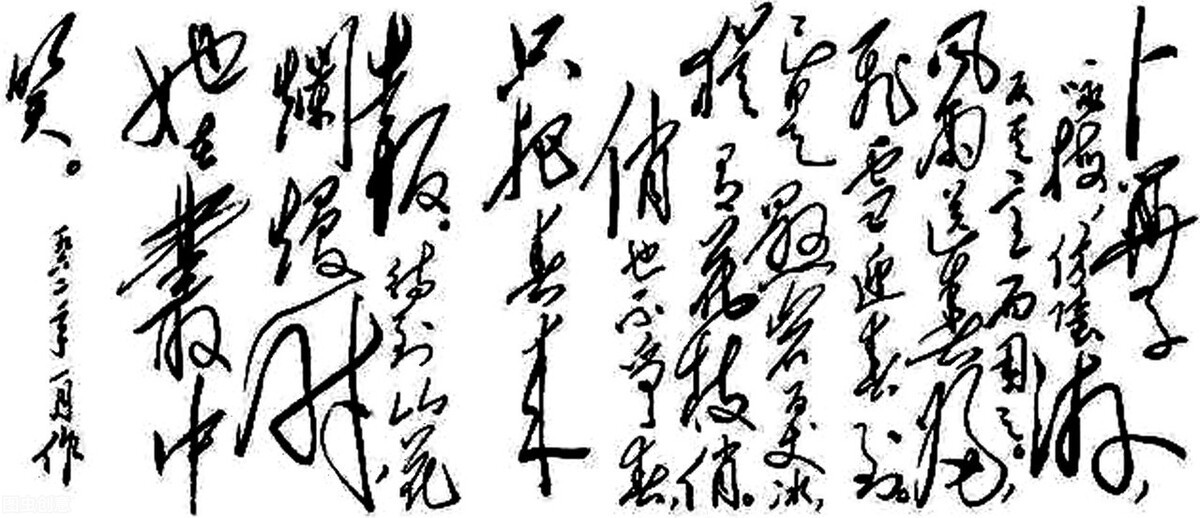 卜算子
咏梅，仿陸游，
反其意而用之。
风雨送春归，
飛雪迎春到。
已是懸岩百丈冰，
犹有花枝俏。
俏也不争春，
只把春来
報。待到山花
爛熳时，
她在叢中
笑。
一九六二年一月作